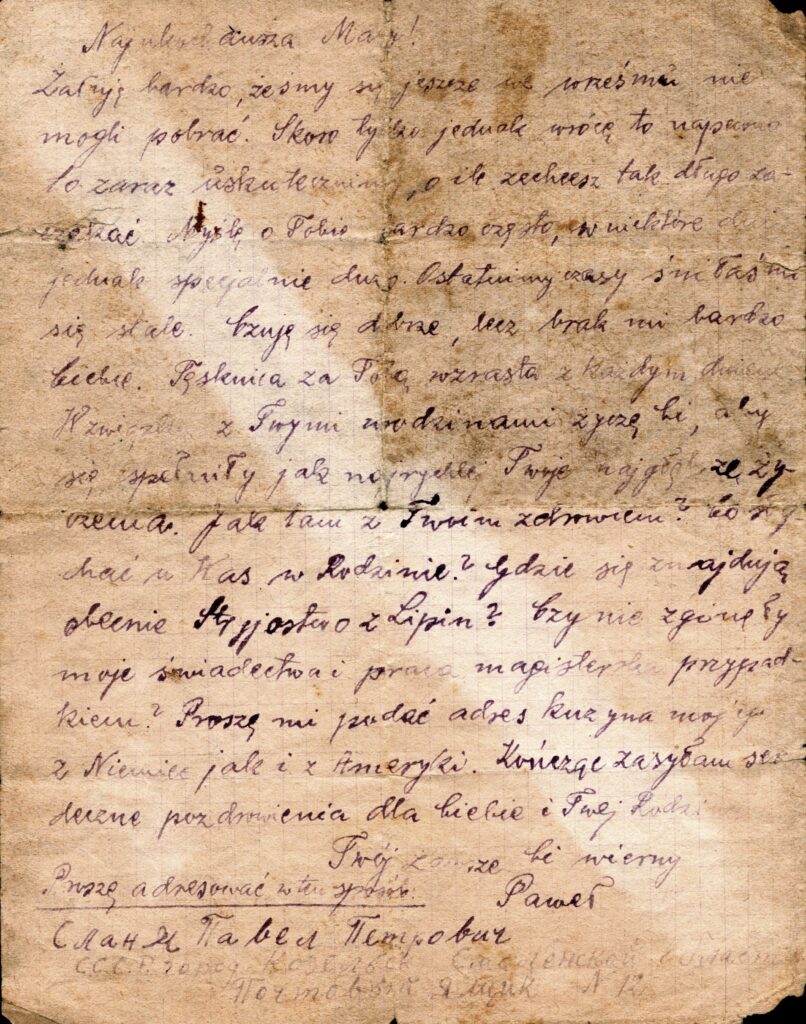 Najukochańsza Mary!
Żałuję bardzo, żeśmy się jeszcze we wrześniu nie
mogli pobrać. Skoro tylko jednak wrócę to napewno
to zaraz uskutecznimy, o ile zechcesz tak długo za-
czekać Myślę o Tobie bardzo często, w niektóre dni
jednak specjalnie dużo. Ostatnimy czasy śniłaś mi
się stale. Czuję się dobrze, lecz brak mi bardzo
Ciebie. Tęsknica za Tobą wzrasta z każdym dniem
W związku z Twymi urodzinami życzę Ci, aby
się spełniły jak najrychlej Twoje najgłębsze ży-
czenia. Jak tam z Twoim zdrowiem? Co sły
chać u Was w Rodzinie? Gdzie się znajdują
obecnie z Lipin? Czy nie zginęły
moje świadectwa i praca magisterska przypad-
kiem? Proszę mi podać adres kuzyna mojego
z Niemiec jak i z Ameryki. Kończąc zasyłam ser
deczne pozdrowienia dla Ciebie i Twej Rodziny
Twój zawsze Ci wierny
Paweł
Proszę adresować w ten sposób:
Павел Петрович
С.С.С.Р. город Козельск Смоленской области
Почтовый ящик N 12